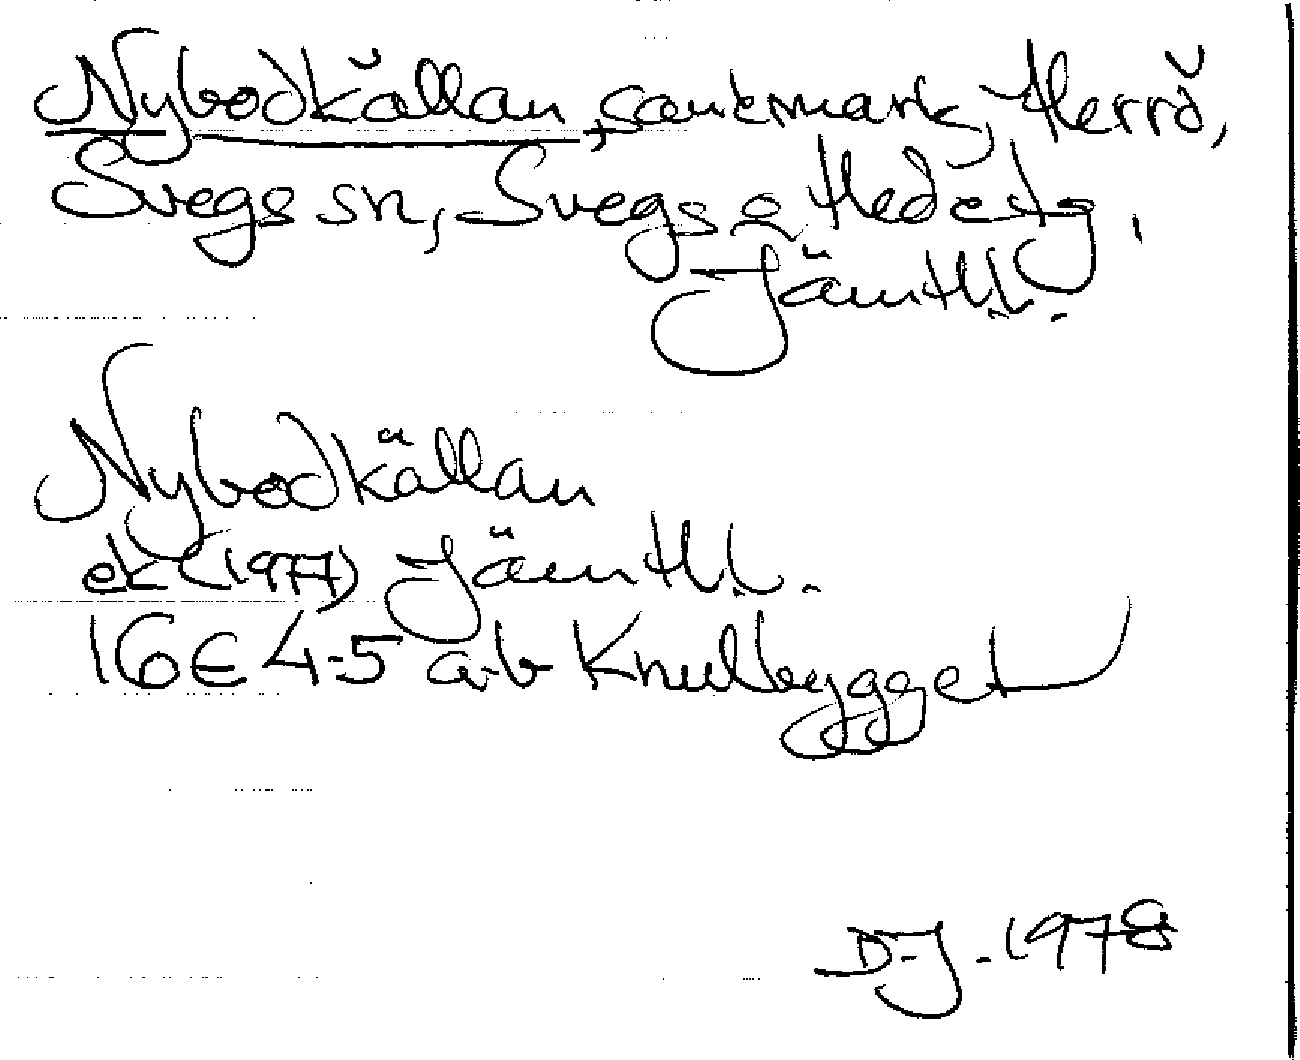 Nybodkällan, sankmark, Herrö,
Svegs sn, Svegs o Hede tg,
Jämtl. l.
Nybodkällan
ek (1977) Jämtl. l.
16E 4-5 a-b Knulbygget
D-J - 1978